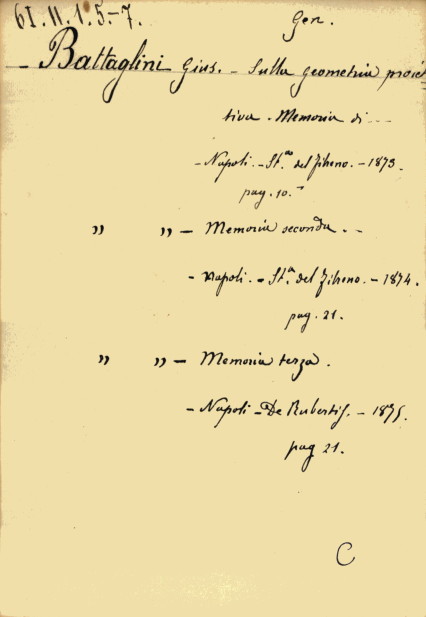 61.II.1.5-7.
Gen.
- Battaglini Gius. - Sulla geometria proiet
tiva. Memoria di - -
- Napoli. - St.ª del Fibreno. - 1873.
pag. 10.
" " - Memoria seconda. -
- Napoli. - St.ª del Fibreno. - 1874.
pag. 21.
" " - Memoria terza.
- Napoli - De Rubertis. - 1875.
pag 21.
C